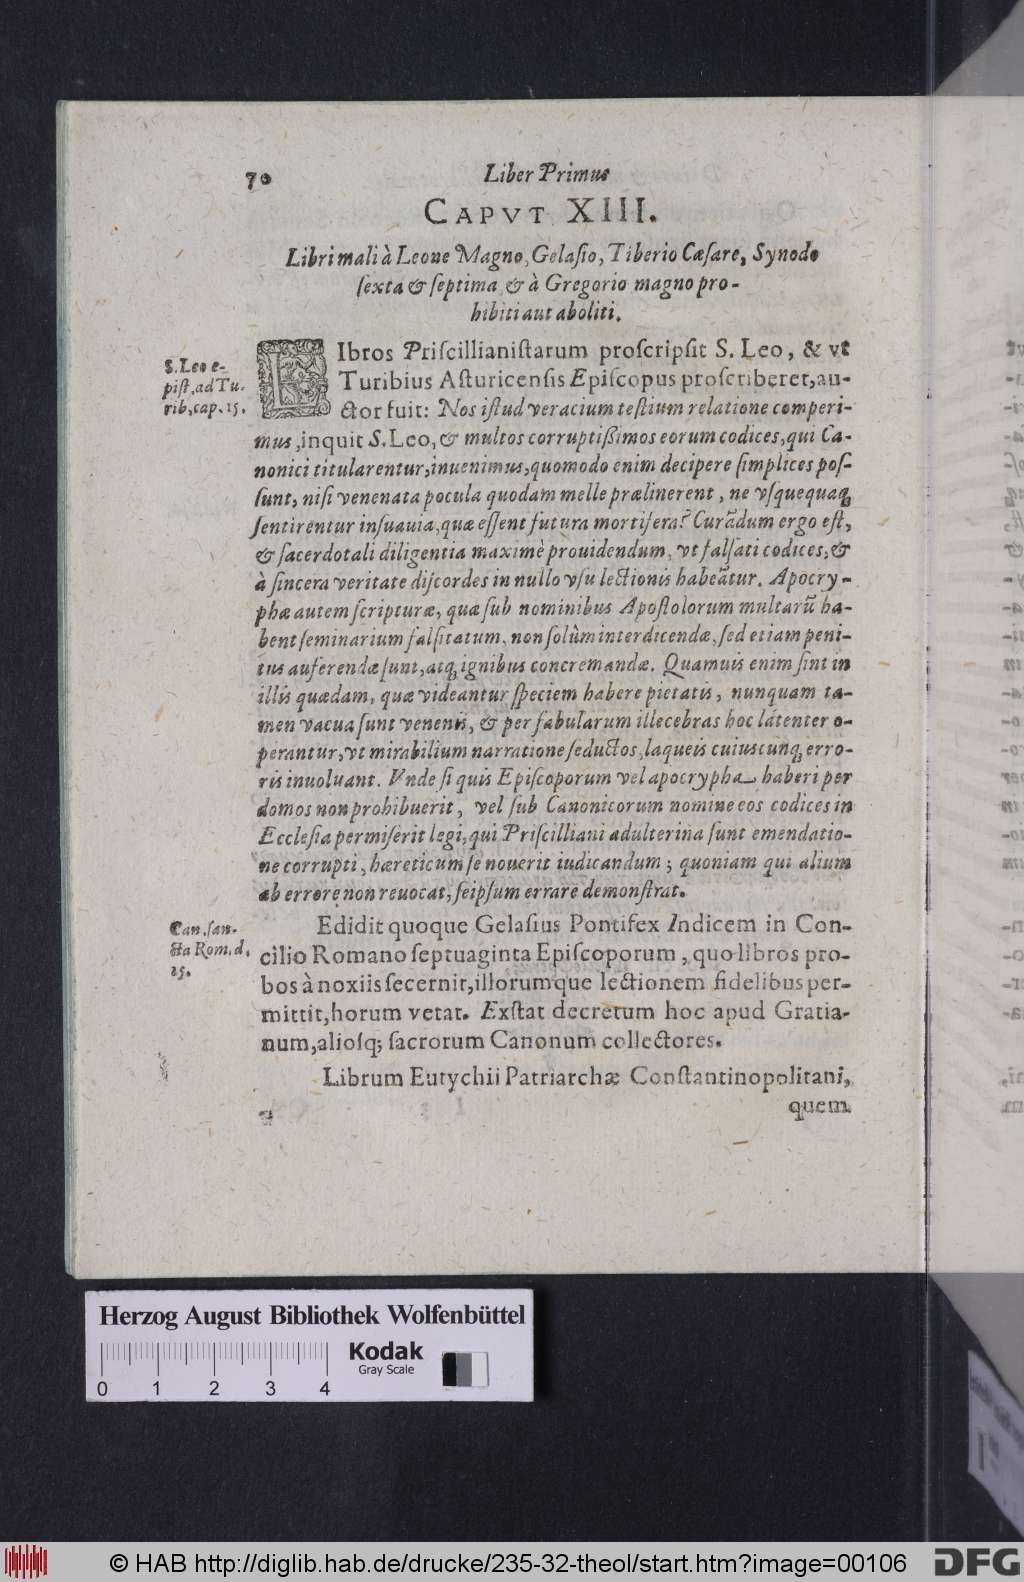 70
Liber Primus
CAPVT XIII.
Libri mali à Leone Magno, Gelaſio, Tiberio Cæſare, Synodo
ſexta & ſeptima, & à Gregorio magno pro-
hibiti aut aboliti.
S. Leo e-
piſt. ad Tu-
rib. cap. 15.
LIbros Priſcillianiſtarum proſcripſit S. Leo, & vt
Turibius Aſturicenſis Epiſcopus proſcriberet, au-
ctor fuit: Nos iſtud veracium teſtium relatione comperi-
mus, inquit S. Leo, & multos corruptißimos eorum codices, qui Ca-
nonici titularentur, inuenimus, quomodo enim decipere ſimplices poſ-
ſunt, niſi venenata pocula quodam melle prælinerent, ne vſquequaq;
ſentirentur inſuauia, quæ eſſent futura mortifera? Curādum ergo eſt,
& ſacerdotali diligentia maximè prouidendum, vt falſati codices, &
à ſincera veritate diſcordes in nullo vſu lectionis habeātur. Apocry-
phæ autem ſcripturæ, quæ ſub nominibus Apoſtolorum multarũ ha-
bent ſeminarium falſitatum, non ſolùm interdicendæ, ſed etiam peni-
tus auferendæ ſunt, atq; ignibus concremandæ. Quamuis enim ſint in
illis quædam, quæ videantur ſpeciem habere pietatis, nunquam ta-
men vacua ſunt venenis, & per fabularum illecebras hoc latenter o-
perantur, vt mirabilium narratione ſeductos, laqueis cuiuscunq; erro-
ris inuoluant. Vnde ſi quis Epiſcoporum vel apocrypha haberi per
domos non prohibuerit, vel ſub Canonicorum nomine eos codices in
Eccleſia permiſerit legi, qui Priſcilliani adulterina ſunt emendatio-
ne corrupti, hæreticum ſe nouerit iudicandum; quoniam qui alium
ab errore non reuocat, ſeipſum errare demonſtrat.
Can. ſan-
cta Rom. d.
15.
Edidit quoque Gelaſius Pontifex Indicem in Con-
cilio Romano ſeptuaginta Epiſcoporum, quo libros pro-
bos à noxiis ſecernit, illorumque lectionem fidelibus per-
mittit, horum vetat. Exſtat decretum hoc apud Gratia-
num, alioſq; ſacrorum Canonum collectores.
Librum Eutychii Patriarchæ Conſtantinopolitani,
quem
Herzog August Bibliothek Wolfenbüttel
Kodak
Gray Scale
0 1 2 3 4
© HAB http://diglib.hab.de/drucke/235-32-theol/start.htm?image=00106
DFG